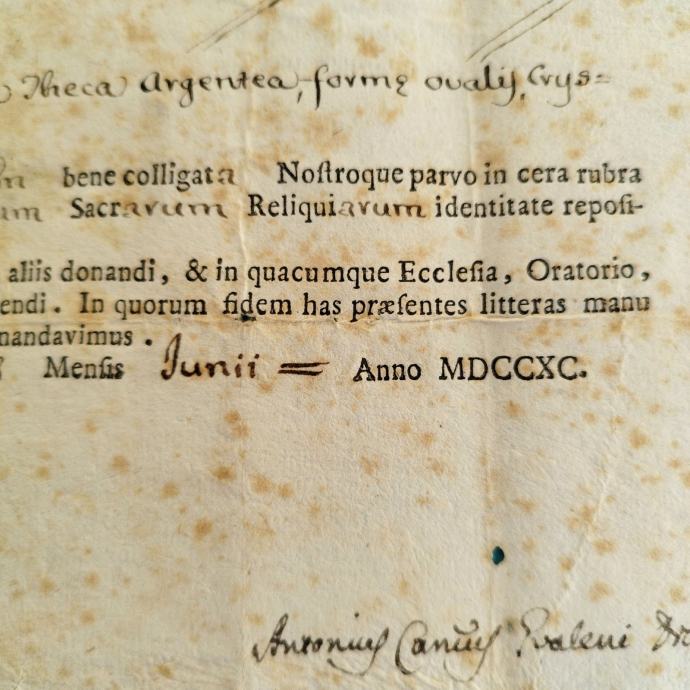 Theca Argentea, formę ovalis, Crys=
bene colligata Noſtroque parvo in cera rubra
um Sacrarum Reliquiarum identitate repoſi-
aliis donandi, & in quacumque Eccleſia, Oratorio,
endi. In quorum fidem has præſentes litteras manu
nandavimus.
Menſis Junii = Anno MDCCXC.
Antonius